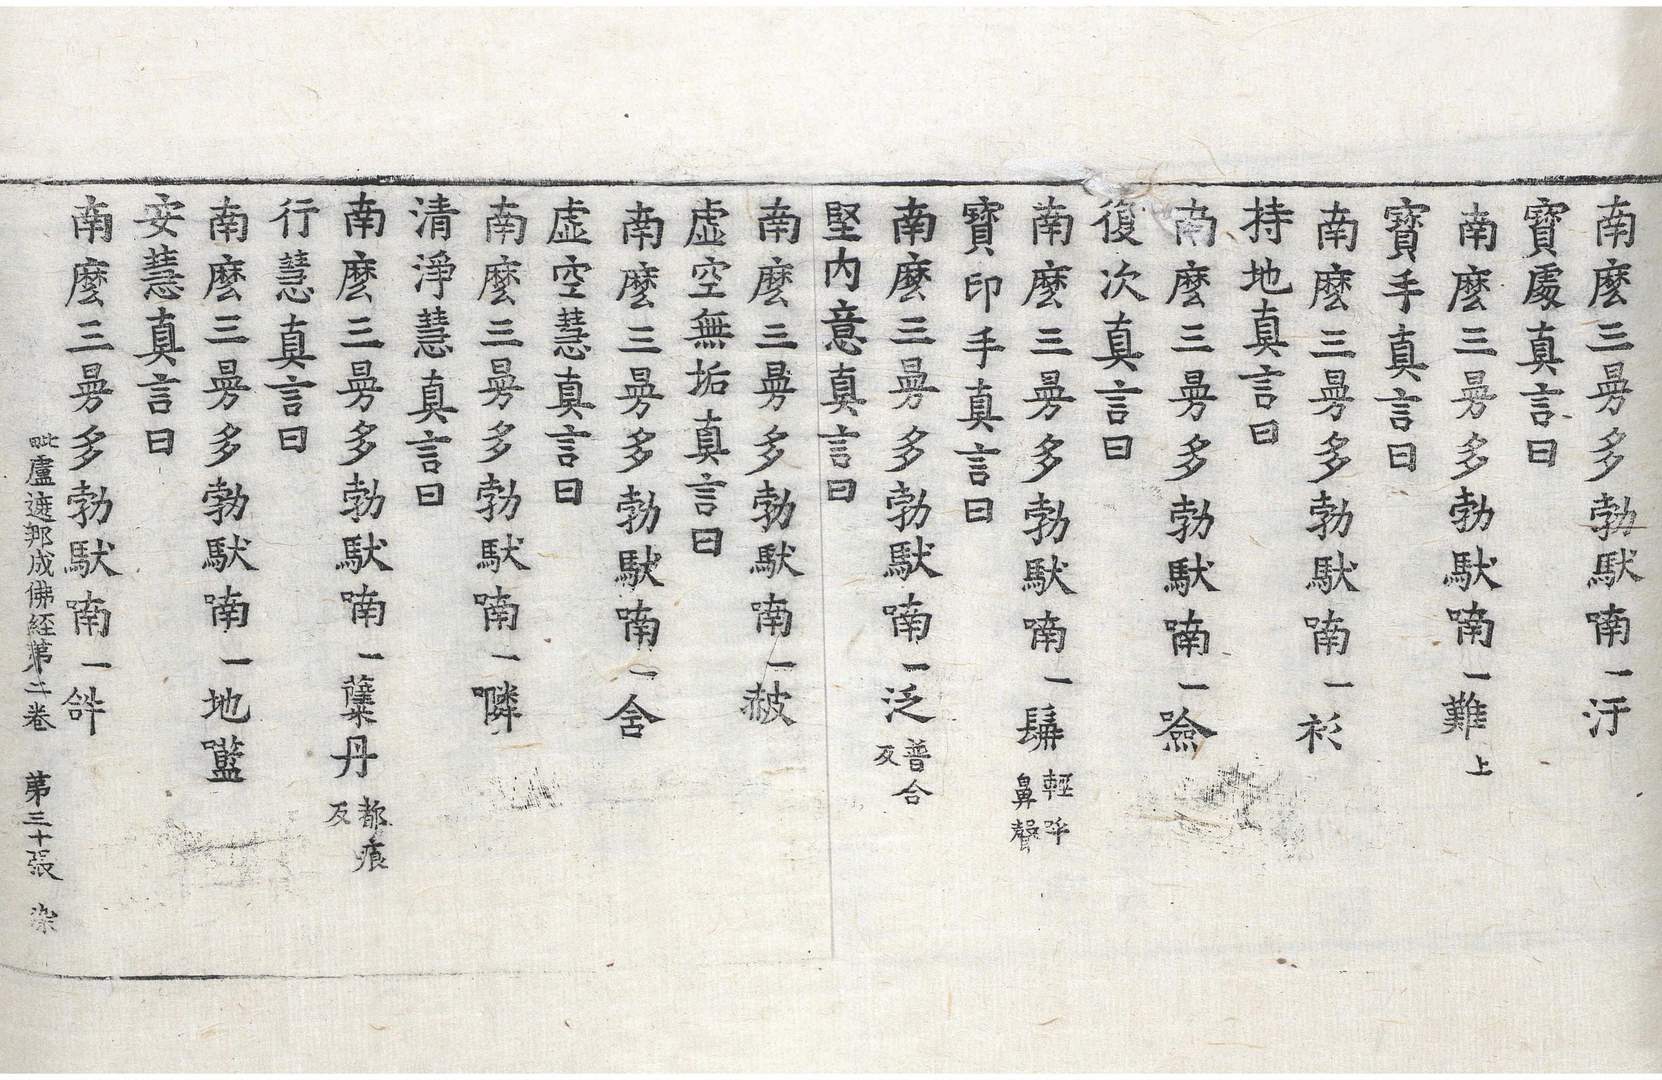 南麽三曼多勃馱喃一汙
寶處真言曰
南麽三曼多勃馱喃一難上
寶手真言曰
南麽三曼多勃馱喃一衫
持地真言曰
南麽三曼多勃馱喃一噞
復次真言曰
南麽三曼多勃馱喃一髴輕呼鼻聲
寶印手真言曰
南麽三曼多勃馱喃一泛普含反
堅內意真言曰
南麽三曼多勃馱喃一嚩
虛空無垢真言曰
南麽三曼多勃馱喃一含
虛空慧真言曰
南麽三曼多勃馱喃一㘓
清淨慧真言曰
南麽三曼多勃馱喃一蘗丹都痕反
行慧真言曰
南麽三曼多勃馱喃一地㘕
安慧真言曰
南麽三曼多勃馱喃一
毗盧遮那成佛經第二卷 第三十張 染